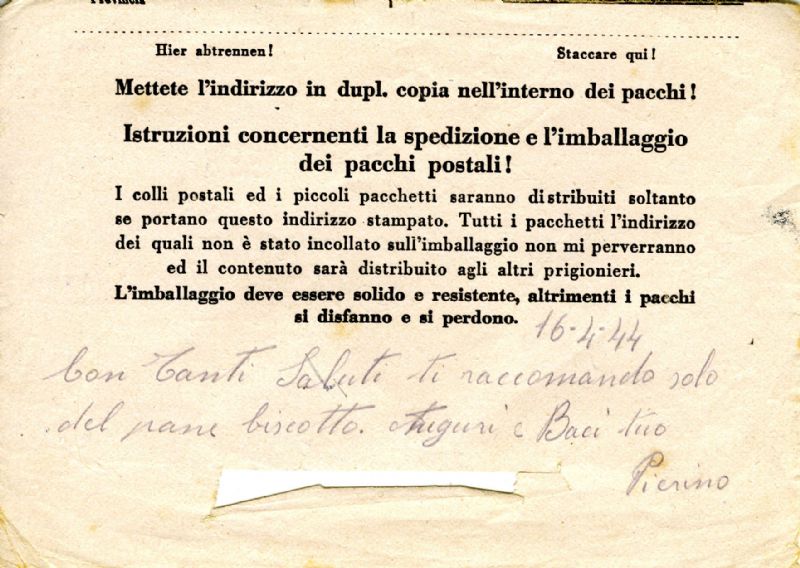 Provincia
Hier abtrennen! Staccare qui!
Mettete l'indirizzo in dupl. copia nell'interno dei pacchi!
Istruzioni concernenti la spedizione e l'imballaggio
dei pacchi postali!
I colli postali ed i piccoli pacchetti saranno distribuiti soltanto
se portano questo indirizzo stampato. Tutti i pacchetti l'indirizzo
dei quali non è stato incollato sull'imballaggio non mi perverranno
ed il contenuto sarà distribuito agli altri prigionieri.
L'imballaggio deve essere solido e resistente, altrimenti i pacchi
si disfanno e si perdono.
16-4-44
Con Tanti Saluti ti raccomando solo
del pane biscotto. Auguri e Baci tuo
Pierino